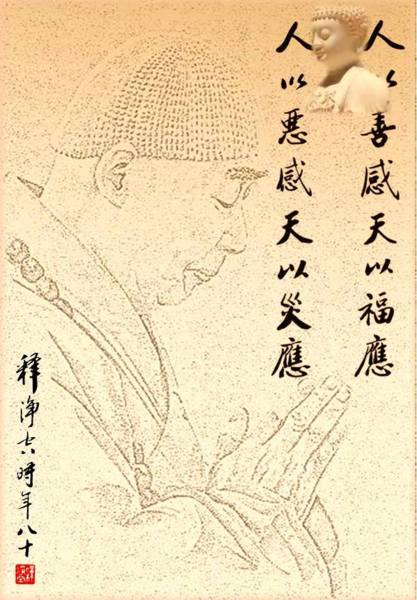 人以善感天以福應
人以惡感天以災應
釋淨空時年八十